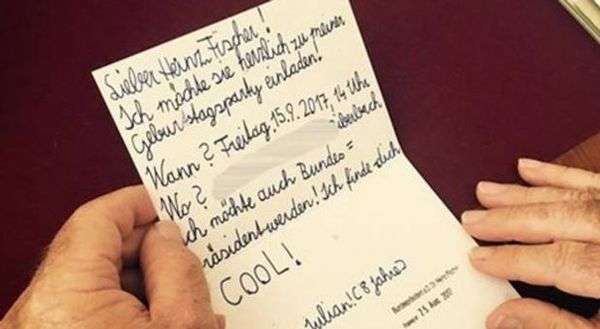 Lieber Heinz Fischer!
Ich möchte sie herzlich zu meiner
Geburtstagsparty einladen.
Wann? Freitag, 15.9.2017, 14 Uhr
Wo?
ch möchte auch Bundes=
räsident werden! Ich finde dich
COOL!
Julian! (8 Jahre)